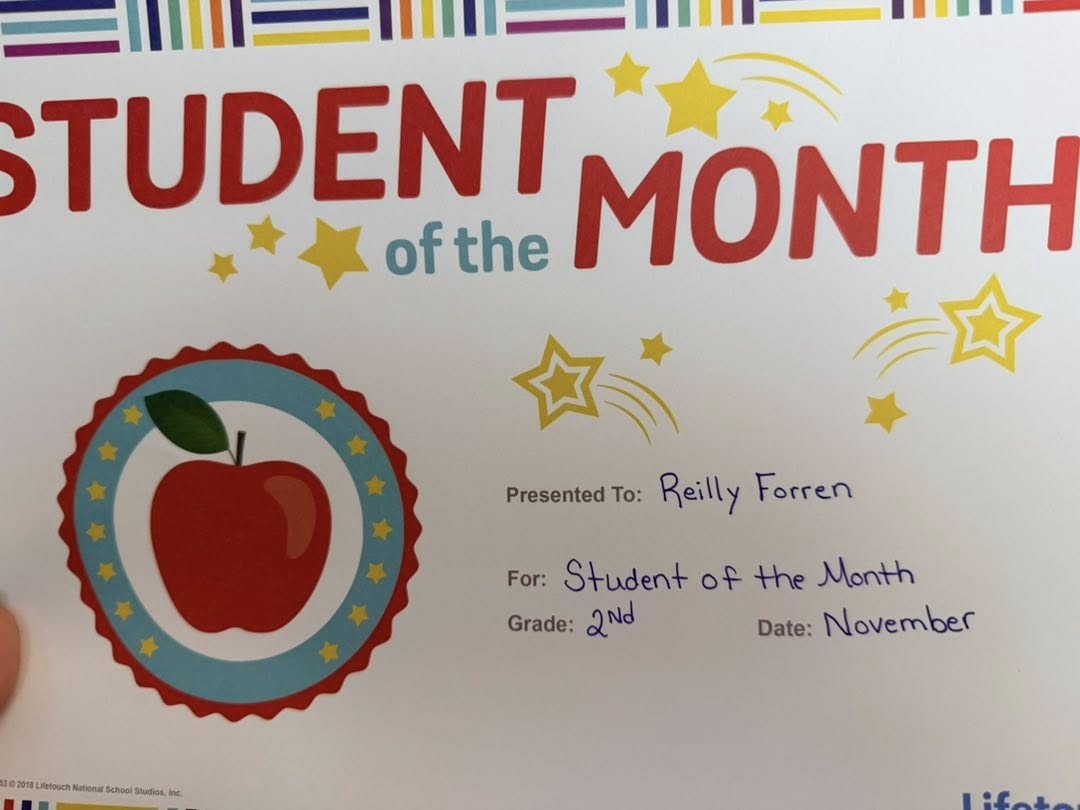 STUDENT
of the MONTH
Presented To: Reilly Forren
For: Student of the Month
Grade: 2nd Date: November
53 © 2018 Lifetouch National School Studios, Inc.